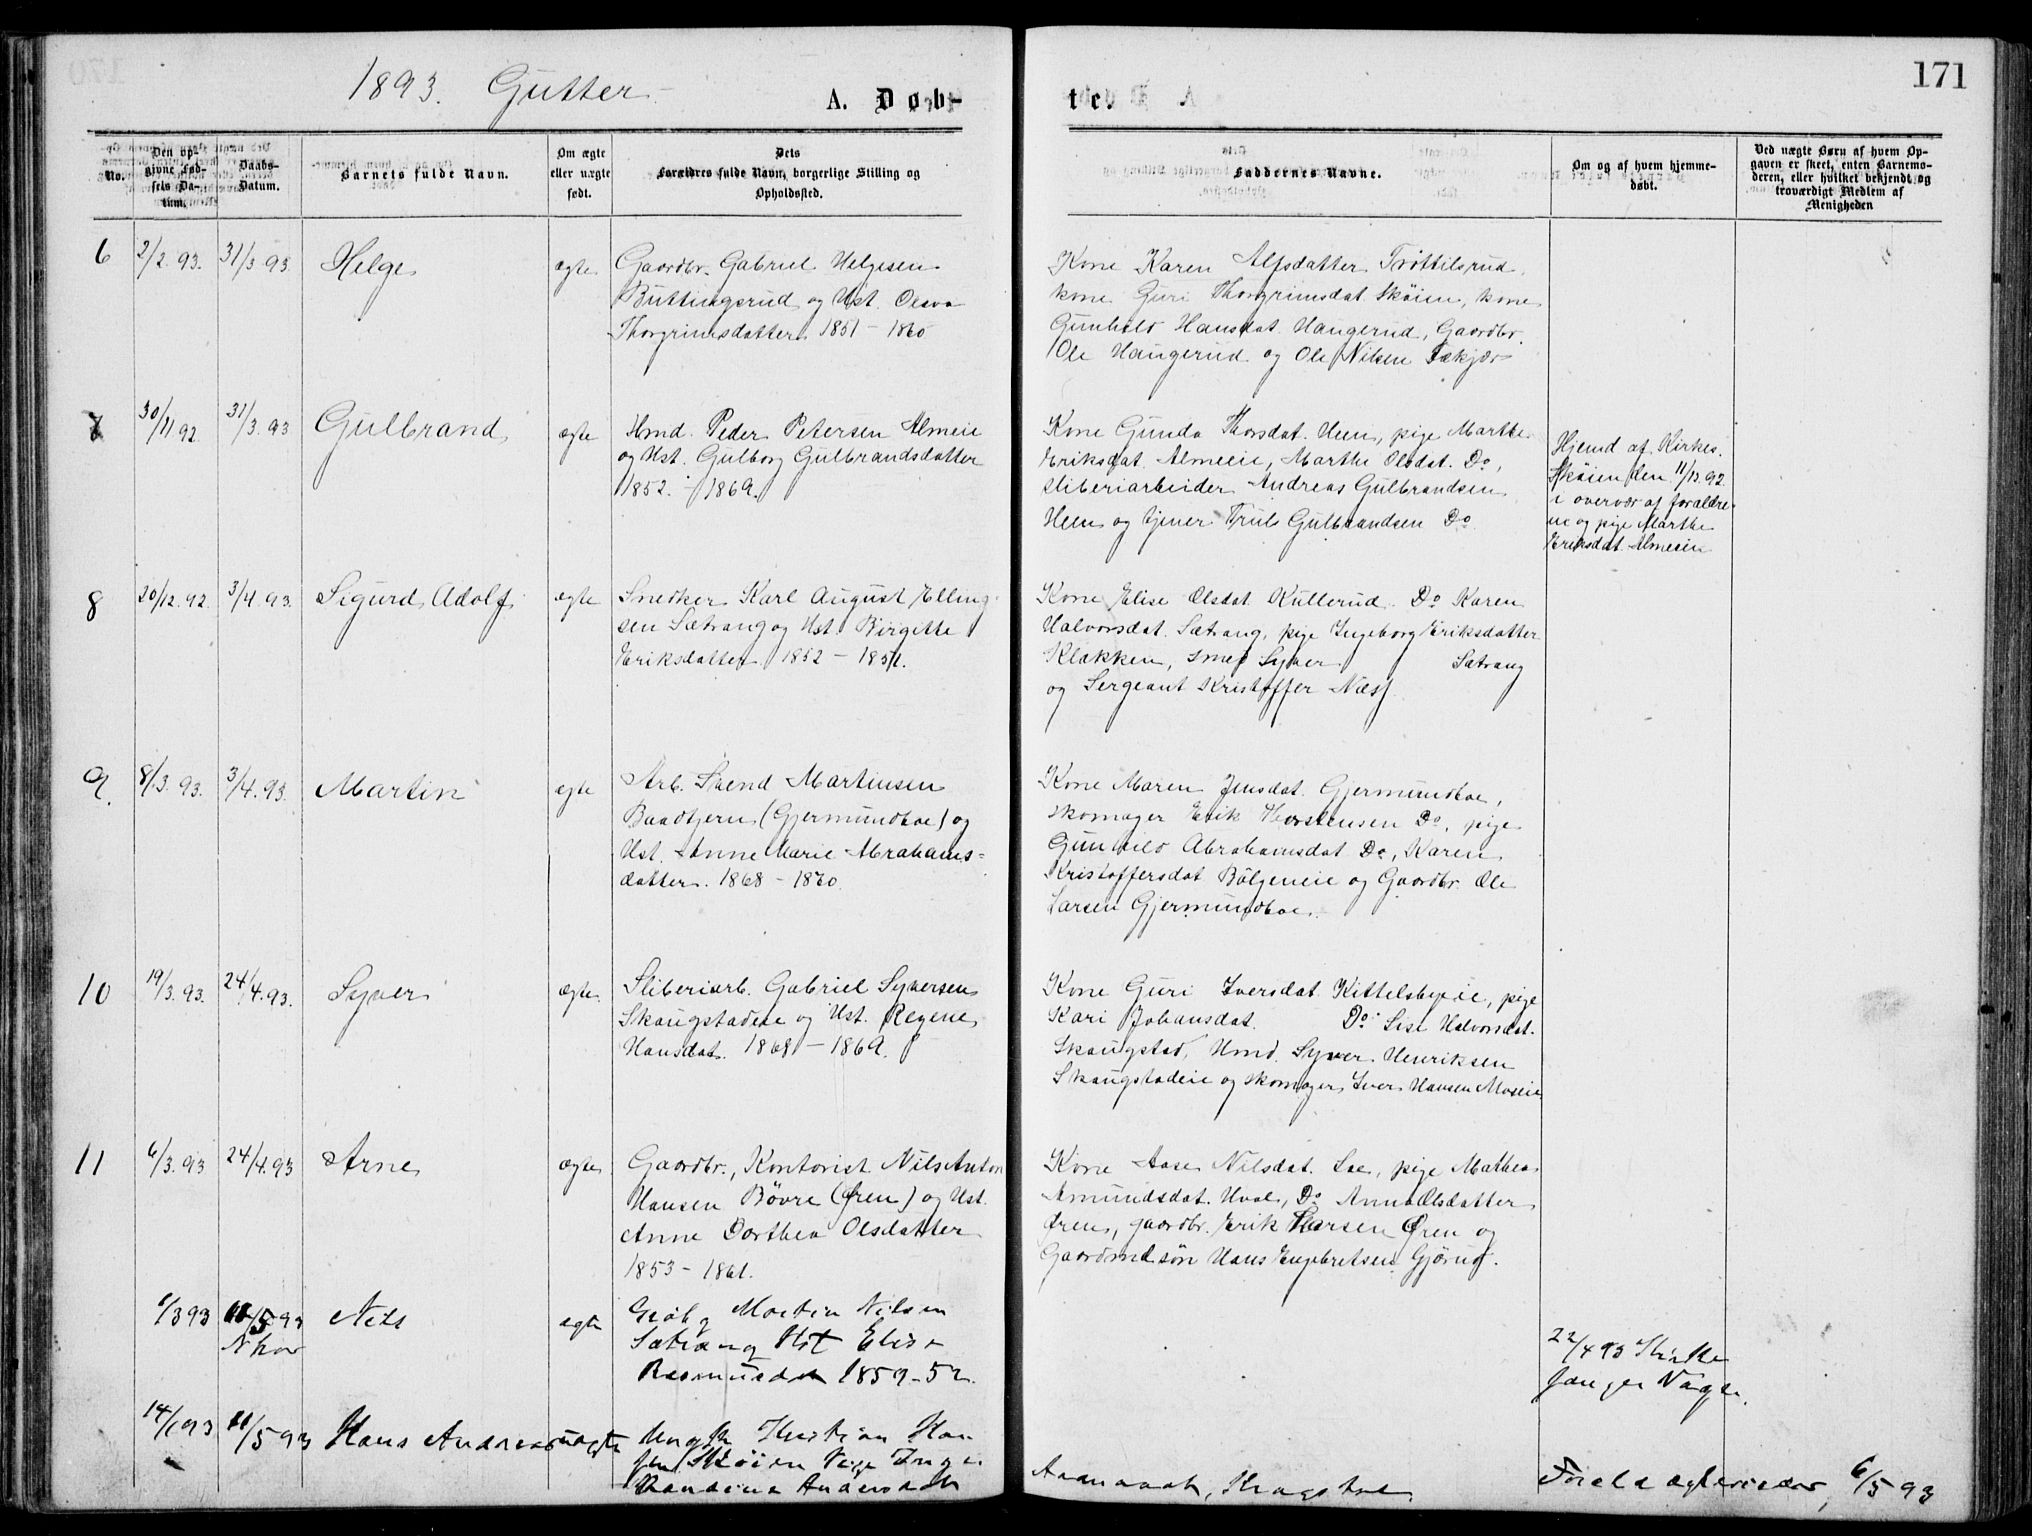 1893. Gutter
A. Døb-
te.
171
No.
Den op-
givne Fød-
sels Da-
tum.
Daabs-
Datum.
Barnets fulde Navn.
Om ægte
eller uægte
født.
Dets
Forældres fulde Navn, borgerlige Stilling og
Opholdssted.
Faddernes Navne.
Om og af hvem hjemme-
døbt.
Ved uægte Børn af hvem Op-
gaven er skeet, enten Barnemo-
deren, eller hvilket bekjendt og
troværdigt Medlem af
Menigheden
6 2/2.93. 31/3.93. Helge ægte
Gaardbr. Gabriel Helgesen
Buttingsrud og Hst.
Thorgrimsdatter. 1851 - 1860
Kone Karen Alfsdatter Trøttilsrud,
kone Guri Thorgrimsdat. Skøien, kone
Gunhild Hansdat. Haugerud, Gaardbr.
Ole Haugerud og Ole Nilsen
7 30/11 92. 31/3.93 Gulbrand ægte
Hmd. Peder Petersen Almeie
og Hst. Gulborg Gulbrandsdatter
1852. - 1869.
Kone Gunda Thorsdat. Heen, pige Marthe
Eriksdat. Almeie, Marthe Olsdat. Do,
sliberiarbeider Andreas Gulbrandsen
Heen og tjener Truls Gulbrandsen Do
Hjemd af Kirkes.
Skøien den 11/12.92.
i overvær af forældre-
ne og pige Marthe
Eriksdat. Almeien
8 20/12.92. 3/4.93. Sigurd Adolf ægte
Snedker Karl August Elling-
sen Sætrang og Hst. Birgitte
Eriksdatter. 1852 - 1851.
Kone Elise Olsdat. Kullerud. Do Karen
Halvorsdat. Sætrang, pige Ingeborg Eriksdatter
Klækken, smed Syver Sætrang
og Sergeant Kristoffer Næss.
9. 8/3.93. 3/4.93. Martin ægte
Arb. Svend Martinsen
Baadtjern (Gjermundboe) og
Hst. Anne Marie Abrahams-
datter. 1868 - 1870.
Kone Maren Jensdat. Gjermundboe,
skomager Erik Thorstensen Do, pige
Gunhild Abrahamsdat. Do, Karen
Kristoffersdat Bølgeneie og Gaardbr. Ole
Larsen Gjermundboe.
10 19/3.93. 24/4.93. Syver ægte.
Sliberiarb. Gabriel Syversen
Skaugstadeie og Hst. Regene
Hansdat. 1868 - 1869.
Kone Guri Iversdat. Kittelsbyeie, pige
Kari Johansdat. Do. Lise Halvorsdat.
Skaugstad, Hmd. Syver Henriksen
Skaugstadeie og skomager Iver Hansen Moseie
11 6/3.93 24/4.93 Arne ægte
Gaardbr., Kontorist Nils Anton
Hansen Bøvre (Øren) og Hst.
Anne Dorthea Olsdatter
1853 - 1861.
Kone Aase Nilsdat. Loe, pige Mathea
Amundsdat. Hval, Do Anne Olsdatter
Øren, gaardbr. Erik Larsen Øren og
Gaardmdsøn Hans Engebretsen Gjørud.
6/3 93 11/5 93 Nils ægte
Martin Nilsen
Sætrang Hst Elise
Rasmusdat 1859-52.
22/4 93
14/1 93 11/5 93 Hans Andreas uægte
Ungk Kristian Han
sen Skøien Pige Inge
Randine Andersdat
6/5 93